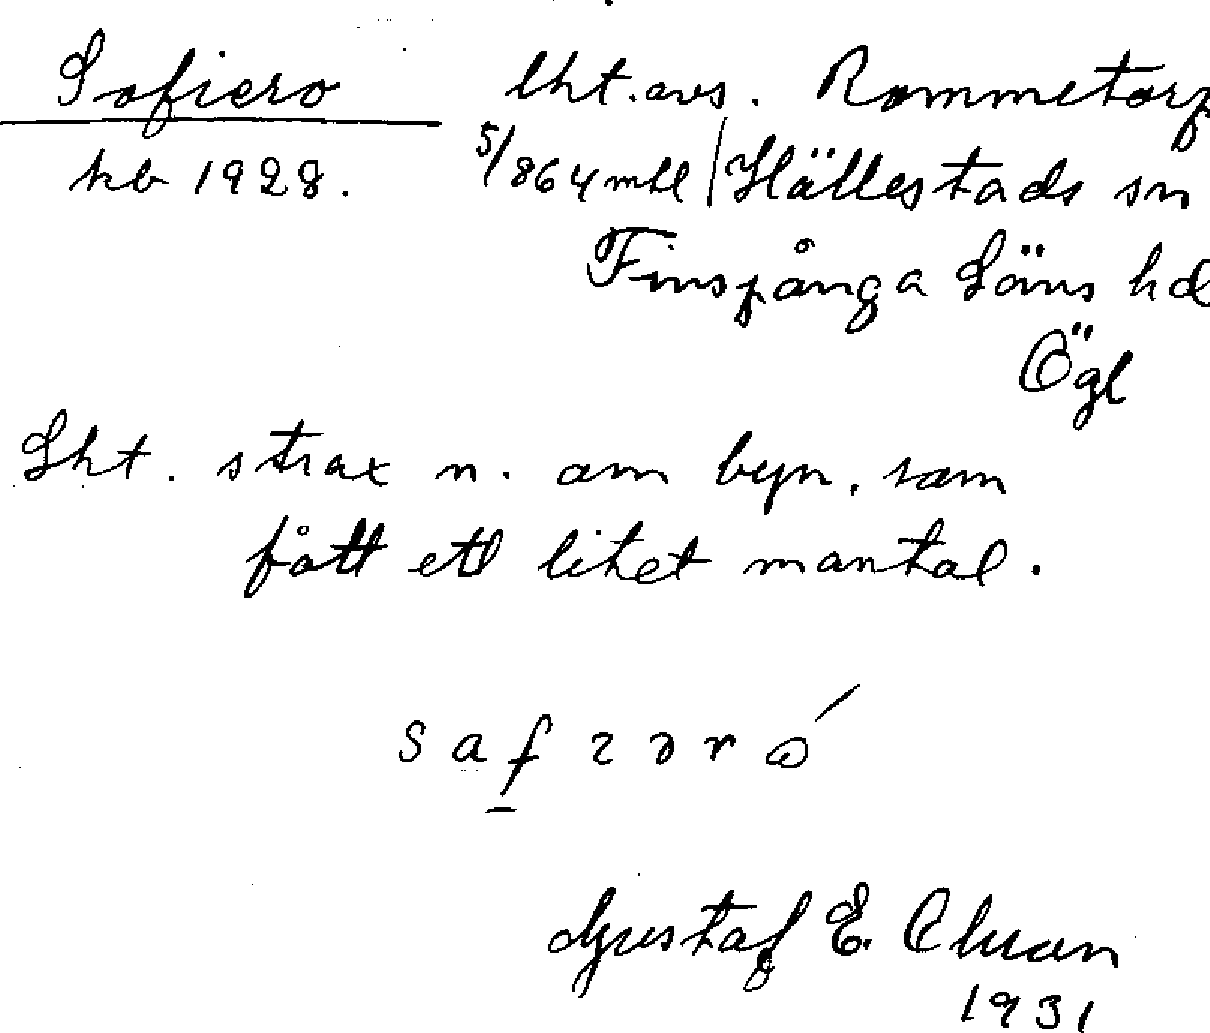 Sofiero lht. avs. Rommetorp
kb 1928. 5/864 mtl / Hällestads sn
Finspånga läns hd
Ögl
Lht. strax n. om byn, som
fått ett litet mantal.
s a f ɩ ə r ó
Gustaf E.
1931